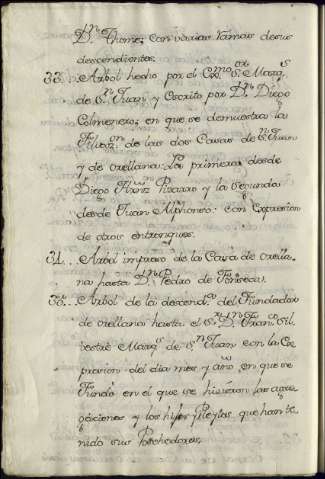 Dn. Thome; con varias ramas de sus
descendientes.
33.. Arbol hecho por el Exmo. Sor. Marqs.
de Sn. Juan y Escrito por Dn. Diego
Colmenero; en que se demuestra la
Filiazon. de las dos Casas de Sn. Juan
y de orellana: La primera desde
Diego Hrnz Pizarro y la segunda
desde Juan Alphonso: con Expresion
de otros entronques.
34.. Arbol impreso de la Casa de orella-
na hasta Dn. Pedro de Fonseca.
35.. Arbol de la descenda. del Fundador
de orellana hasta el Sr. Dn. Franco. Sil-
bestre Marqs. de Sn. Juan con la Ex-
presion del dia mes y año en que se
Fundó en el que se hisieron las
y los hijos y Pleytos que han te-
nido sus Posehedores.